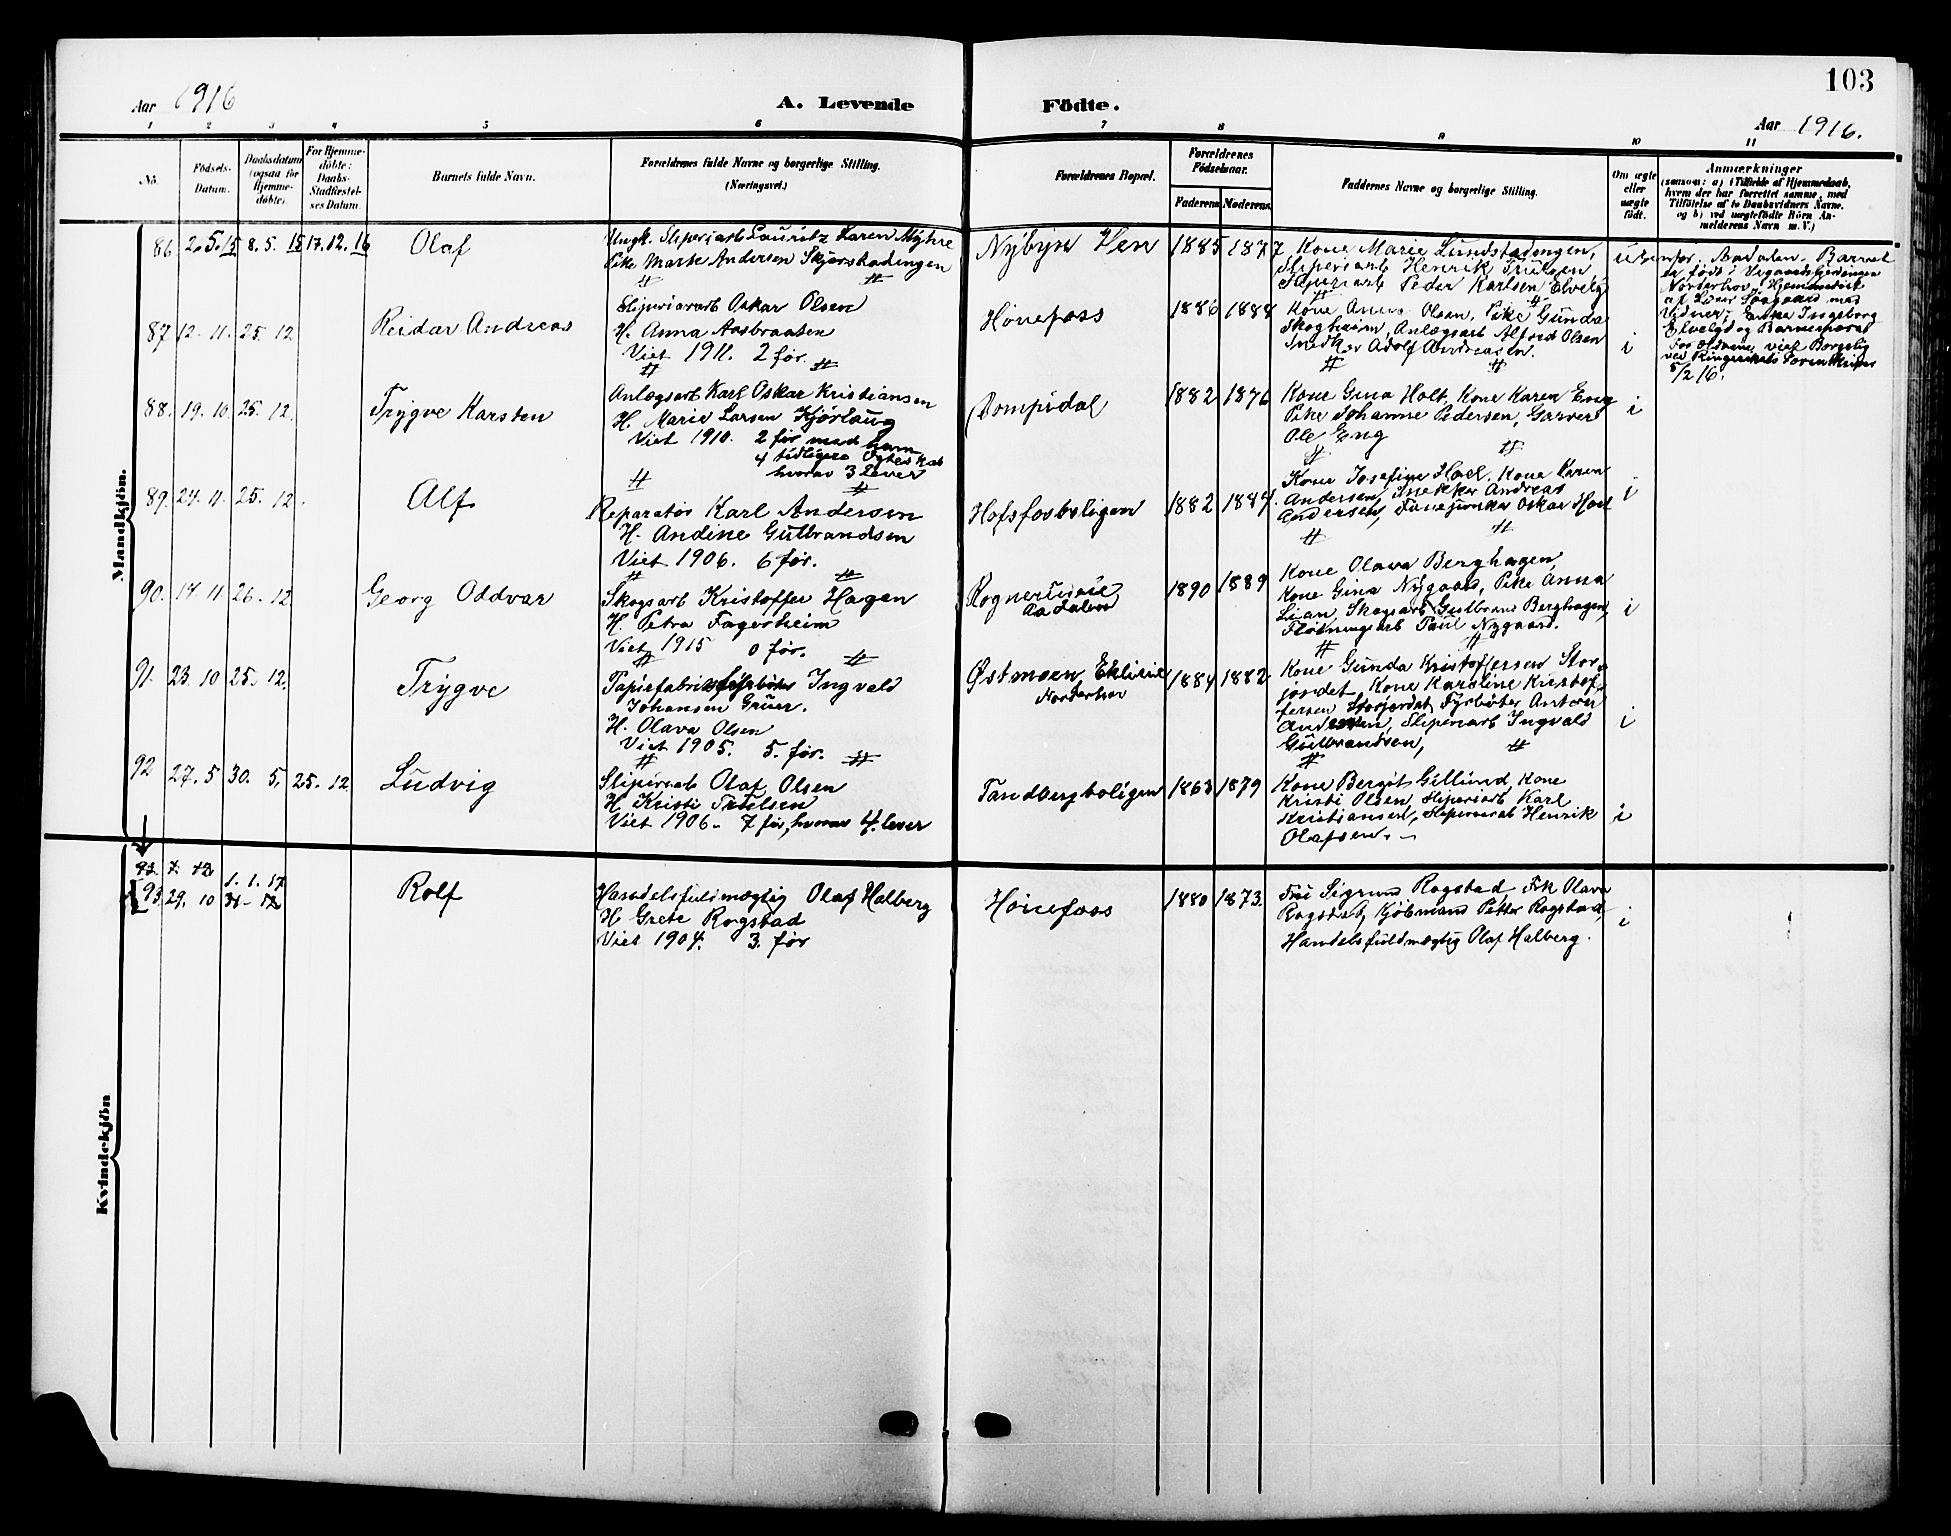 103
Aar 1916
A. Levende
Födte.
Aar 1916.
1 2 3 4 5 6 7 8 9 10 11
No.
Födsels-
Datum.
Daabsdatum
(ogsaa for
Hjemme-
döbte).
For Hjemme-
döbte:
Daabs-
Stadfæstel-
ses Datum.
Barnets fulde Navn.
Forældrenes fulde Navne og borgerlige Stilling.
(Næringsvei.)
Forældrenes Bopæl.
Forældrenes
Födselsaar.
Faderens. Moderens.
Faddernes Navne og borgerlige Stilling.
Om ægte
eller
uægte
födt.
Anmærkninger
(saasom: a) i Tilfælde af Hjemmedaab,
hvem der har forrettet samme, med
Tilföielse af to Daabsvidners Navne.
og b) ved uægtefödte Börn An-
melderens Navn m. V.)
Mandkjön.
86 2. 5. 15 8. 5. 15 17. 12. 16
Olaf
Ungk. Sliperiarb Lauritz Larsen Myhre
Pike Marte Andersen Skjørstadengen
Nybyn Hen
1885 1877
Kone Marie Lundstadengen,
Sliperiarb Henrik
Sliperiarb Peder Karlsen Elvelÿ
u
utenfor. Aadalen. Barnet
er født i
Norderhov. Hjemmedöbt
af med
Vidner; Enke Ingeborg
Elvelÿ og Barnemoren
Forældrene viet Borgerlig
ved Ringerikets Sorenskriver
5/2 16.
87 12. 11. 25. 12
Reidar Andreas
Sliperiarb Oskar Olsen
H. Anna Aasbraaten
Viet 1911. 2 før.
Hønefoss
1886 1888
Kone Anna Olsen, Pike Gunda
Skogheim, Anlægsarb Alfred Olsen
Snedker Adolf Andreasen.
i
88. 19. 10. 25. 12.
Trygve Karsten
Anlægsarb Karl Oskar Kristiansen
H. Marie Larsen Kjørlaug
Viet 1910. 2 før med ham
4 tidligere Egteskab
hvorav 3 lever
1882 1876
Kone Gina Holt, Kone Karen Eng
Pike Johanne Pedersen, Garver
Ole Eng
i
89. 24. 11. 25. 12.
Alf
Reparatør Karl Andersen
H. Andine Gulbrandsen
Viet 1906. 6 før.
Hofsfosboligen
1882 1884.
Kone Josefine Hoel, Kone Karen
Andersen, Snekker Andreas
Andersen, Oskar Hoel
i
90. 14. 11. 26. 12.
Georg Oddvar
Skogsarb Kristoffer Hagen
H. Petra Fagerheim
Viet 1915 0 før.
Aadalen
1890 1889
Kone Olava Berghagen,
Kone Gina Nygaard, Pike Anna
Lian, Skogsarb Gulbrand Berghagen,
Fløtningsarb Paul Nygaard.
i
91. 23. 10 25. 12.
Trygve
Ingvald
Johansen Gruer.
H. Olava Olsen
Viet 1905. 5. før.
Østmoen,
Norderhov
1884 1882.
Kone Gunda Kristoffersen Stor-
jordet, Kone Karoline Kristof-
fersen Storjordet, Fyrbøter Anton
Andersen, Sliperiarb Ingvald
Gulbrandsen,
i
92 27. 5 30. 5. 25. 12
Ludvig
Sliperiarb Olaf Olsen
H. Kristi
Viet 1906. 7 før, hvorav 4. lever
Tandbergboligen
1863 1879
Kone Bergit Gillund, Kone
Kristi Olsen, Sliperiarb Karl
Kristiansen, Sliperiarb Henrik
Olafsen.
i
1. 1. 17
93. 29. 10
Rolf
Handelsfuldmægtig Olaf Halberg
H. Grete Rogstad
Viet 1904. 3. før
Hønefoss
1880 1873.
Fru Sigrund Rogstad Frk Olava
Rogstad, Kjøbmand Petter Rogstad,
Handelsfuldmægtig Olaf Halberg.
i
Kvindekjön